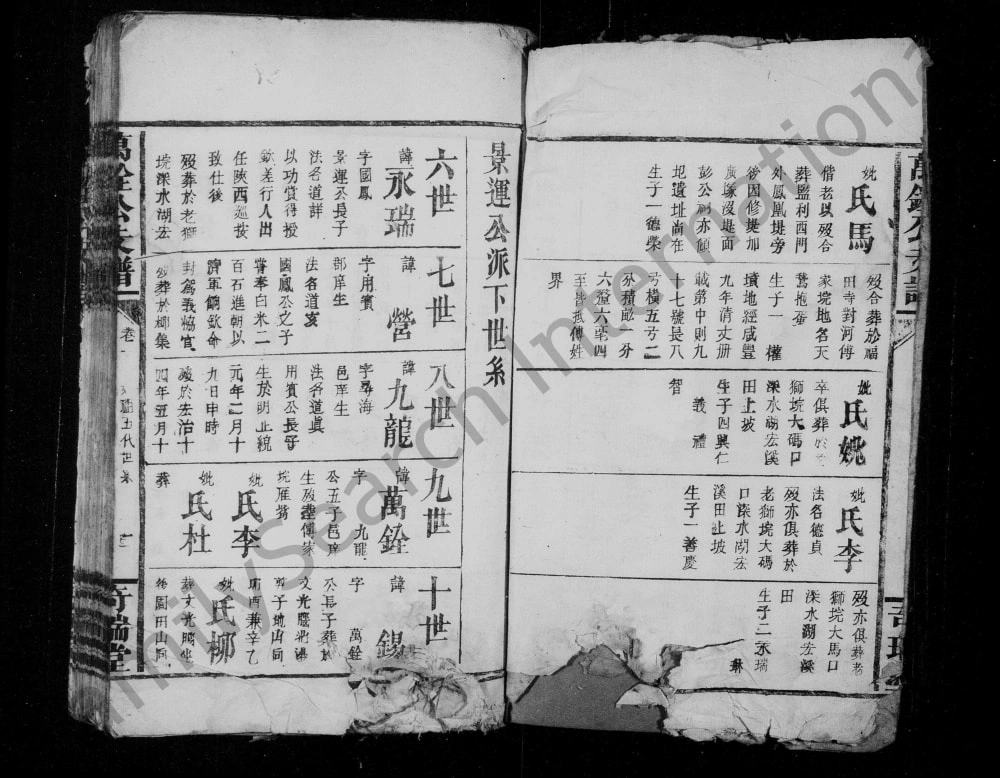 妣氏馬
偕老以歿合
葬監利西門
外鳳凰堤旁
後因修堤加
廣塚沒堤面
彭公祠亦傾
圯遺址尚在
生子一德榮
歿合葬於福
田寺對河傅
家垸地名天
鵞抱蛋
生子一 權
墳地經咸豐
九年清丈册
載第中則九
十七號長八
弓橫五弓二
分積畝一分
六釐六毫四
至皆抵傅姓
界
妣氏姚
卒俱葬於老
獅垸大碼口
深水湖宏溪
田上坡
生子四興仁
義禮
智
妣氏李
法名德貞
歿亦俱葬於
老獅垸大碼
口深水湖宏
溪田上坡
生子一善慶
歿亦俱葬老
獅垸大馬口
深水湖宏溪
田
生子二永瑞
琳
景運公派下世系
六世
諱永瑞
字國鳳
景運公長子
法名道詳
以功賞得授
欽差行人出
任陝西廵按
致仕後
歿葬於老獅
垸深水湖宏
七世
諱營
字用賓
郡庠生
法名道亥
國鳳公之子
嘗奉白米二
百石進朝以
濟軍餉欽命
封駕義協官
歿葬於柳集
八世
諱九龍
字尋海
邑庠生
法名道眞
用賓公長子
生於明正統
元年二月十
九日申時
歿於宏治十
四年五月十
九世
諱萬銓
字九龍
公五子邑庠
生歿塟傅家
垸雁嘴
妣氏李
妣氏杜
葬
十世
諱錫
字萬銓
公長子葬於
文光騰北濠
剪子地山同
庚酉兼辛乙
妣氏柳
葬文光騰北
後園田山同
萬銓公支譜
卷一
五代世系
符瑞堂
FamilySearch International